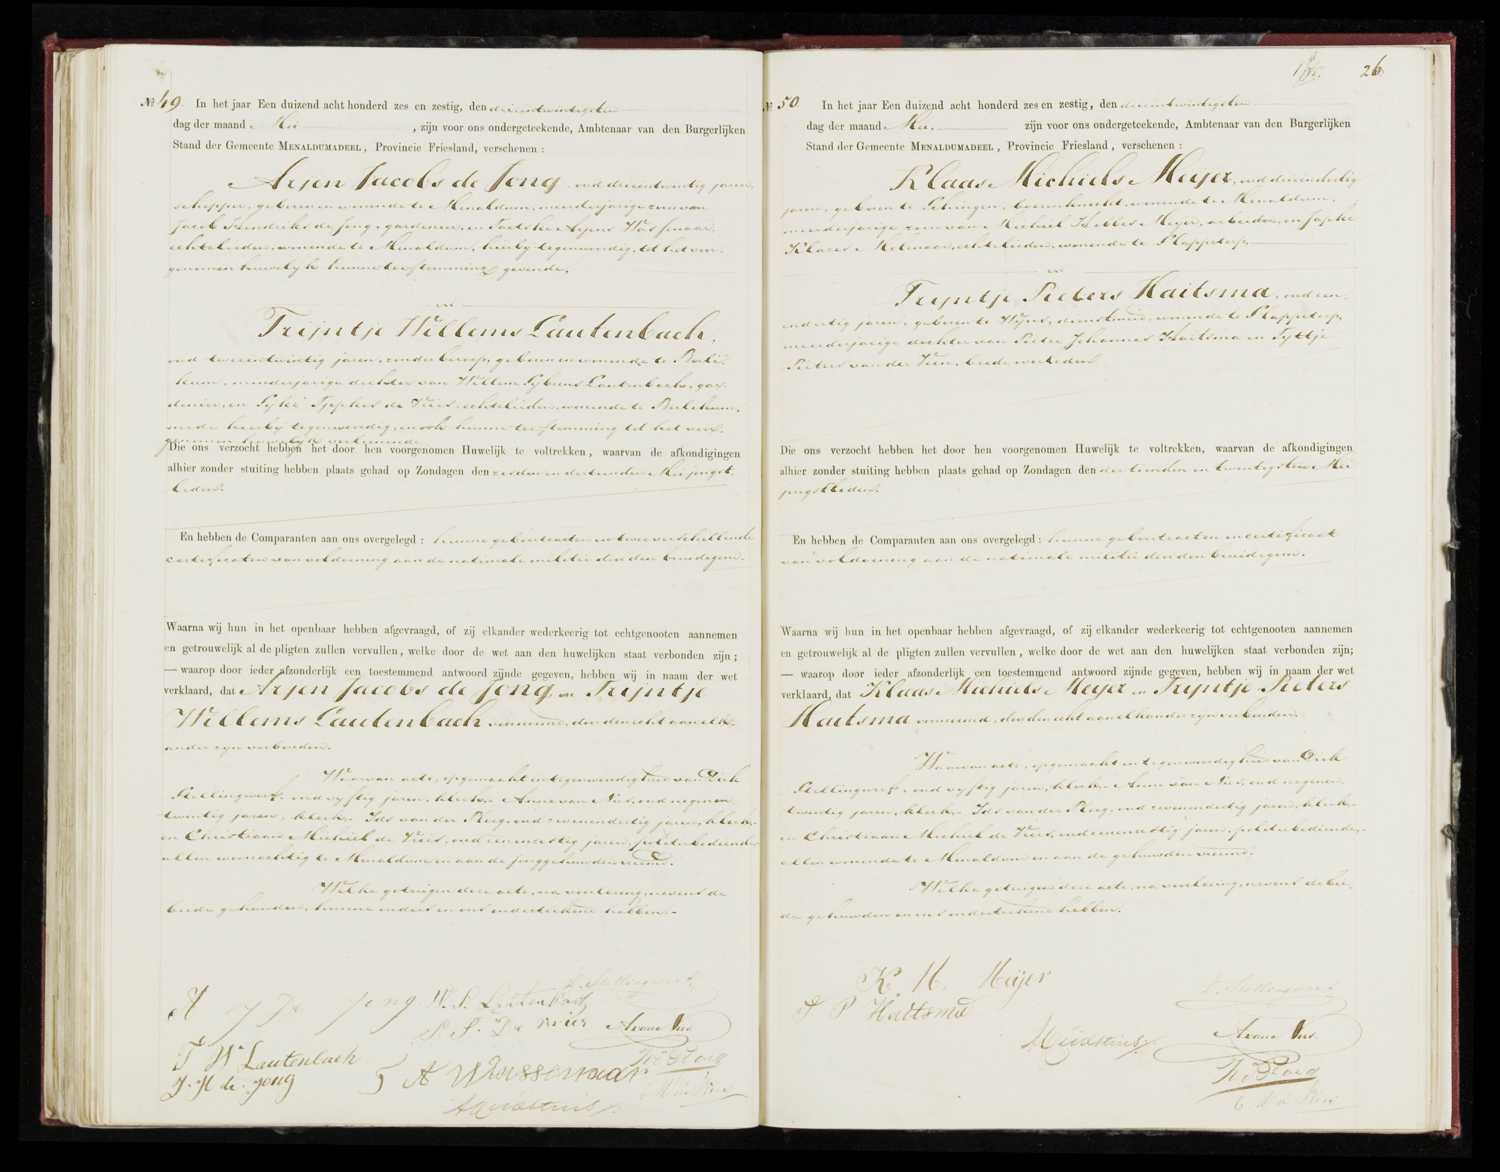 No 49. In het jaar Een duizend acht honderd zes en zestig, den drieentwintigsten
dag der maand Mei, zijn voor ons ondergeteekende, Ambtenaar van den Burgerlijken
Stand der Gemeente MENALDUMADEEL, Provincie Friesland, verschenen :
Arjen Jacobs de Jong, oud drieentwintig jaren,
schipper, geboren en wonende te Menaldum, meerderjarige zoon van
Jacob Hendriks de Jong, gardenier, en Tjetske Arjens Wassenaar,
echtelieden, wonende te Menaldum, hierbij tegenwoordig, tot het voor-
genomen huwelijk hunne toestemming gevende,
en
Trijntje Willems Lautenbach,
oud tweeentwintig jaren, zonder beroep, geboren en wonende te Berli-
kum, minderjarige dochter van Willem Sybrens Lautenbach, gar-
denier, en Sijke de Vries, echtelieden, wonende te Berlikum,
mede hierbij tegenwoordig, en ook hunne toestemming tot het voor-
genomen huwelijk verleenende
Die ons verzocht hebben het door hen voorgenomen Huwelijk te voltrekken, waarvan de afkondigingen
alhier zonder stuiting hebben plaats gehad op Zondagen den zesden en dertienden Mei jongst-
leden.
En hebben de Comparanten aan ons overgelegd : hunne geboorteacten en twee verschillende
certificaten van voldoening aan de nationale militie door den bruidegom.
Waarna wij hun in het openbaar hebben afgevraagd, of zij elkander wederkeerig tot echtgenooten aannemen
en getrouwelijk al de pligten zullen vervullen, welke door de wet aan den huwelijken staat verbonden zijn ;
— waarop door ieder afzonderlijk een toestemmend antwoord zijnde gegeven, hebben wij in naam der wet
verklaard, dat Arjen Jacobs de Jong en Trijntje
Willems Lautenbach voornoemd, door den echt aan elk-
ander zijn verbonden.
Waarvan acte, opgemaakt in tegenwoordigheid van Dirk
Stellingwerf, oud vijftig jaren, klerk, Anne van Nes, oud negenen-
twintig jaren, klerk, Ids van der Ploeg, oud jaren, klerk,
en Christiaan Michiel de Vries, oud eenenzestig jaren, politiebediende,
allen woonachtig te Menaldum en aan de jonggehuwden vreemd.
Welke getuigen deze acte, na voorlezing, nevens de
beide gehuwden, hunne ouders en ons onderteekend hebben.
A J De Jong W. S. Lautenbach D. Stellingwerf
S. De Vries A van Nes
T W Lautenbach
J. H. de Jong T A Wassenaar
26
No 50. In het jaar Een duizend acht honderd zes en zestig, den drieentwintigsten
dag der maand Mei, zijn voor ons ondergeteekende, Ambtenaar van den Burgerlijken
Stand der Gemeente MENALDUMADEEL, Provincie Friesland, verschenen :
Klaas Michiels Meijer, oud drieendertig
jaren, geboren te, boerenknecht, wonende te Menaldum,
meerderjarige zoon van Michiel Meijer, arbeider, en
Klazes, echtelieden, wonende te Slappeterp,
en
Trijntje Pieters Haitsma, oud een-
endertig jaren, geboren te Wijns, dienstmeid, wonende te Slappeterp,
meerderjarige dochter van Pieter Johannes Haitsma en Tjittje
Pieters van der Veen, beide overleden.
Die ons verzocht hebben het door hen voorgenomen Huwelijk te voltrekken, waarvan de afkondigingen
alhier zonder stuiting hebben plaats gehad op Zondagen den dertienden en twintigsten Mei
jongstleden.
En hebben de Comparanten aan ons overgelegd : hunne geboorteacten en certificaat
van voldoening aan de nationale militie door den bruidegom.
Waarna wij hun in het openbaar hebben afgevraagd, of zij elkander wederkeerig tot echtgenooten aannemen
en getrouwelijk al de pligten zullen vervullen, welke door de wet aan den huwelijken staat verbonden zijn;
— waarop door ieder afzonderlijk een toestemmend antwoord zijnde gegeven, hebben wij in naam der wet
verklaard, dat Klaas Michiels Meijer en Trijntje Pieters
Haitsma voornoemd, door den echt aan elkander zijn verbonden.
Waarvan acte, opgemaakt in tegenwoordigheid van Dirk
Stellingwerf, oud vijftig jaren, klerk, Anne van Nes, oud negenen-
twintig jaren, klerk, Ids van der Ploeg, oud jaren, klerk,
en Christiaan Michiel de Vries, oud eenenzestig jaren, politiebediende,
allen wonende te Menaldum en aan de gehuwden vreemd.
Welke getuigen deze acte, na voorlezing, nevens de bei-
de gehuwden en ons onderteekend hebben.
K. M. Meijer D. Stellingwerf
T P Haitsma
A van Nes